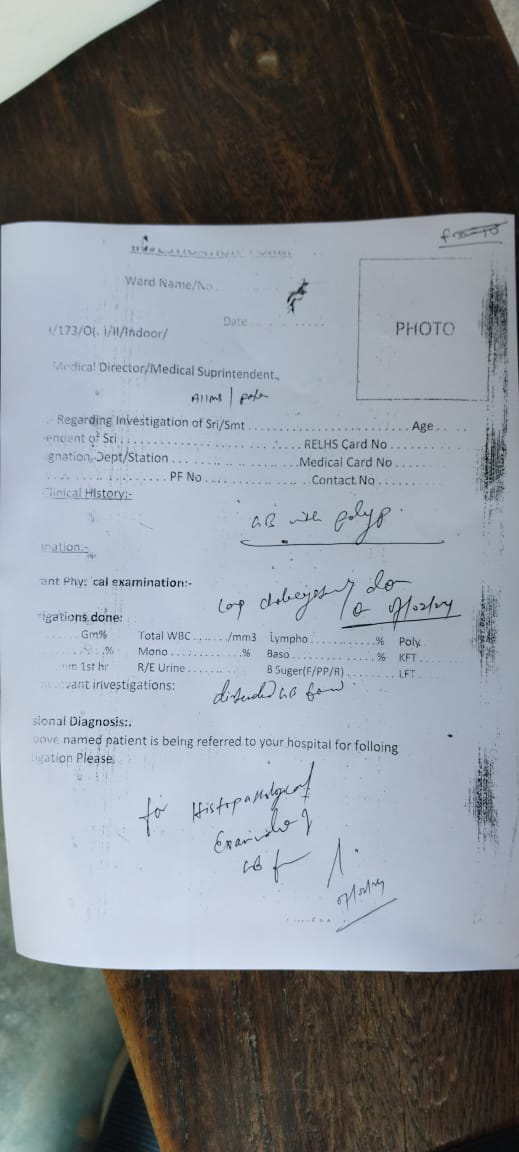 Ward Name/No
Date
/173/O(. )/II/Indoor/
PHOTO
Medical Director/Medical Suprintendent.,
AIIMS |
:- Regarding Investigation of Sri/Smt ........ Age ....
endent of Sri ........ RELHS Card No ........
ignation, Dept/Station ........ Medical Card No ........
PF No ........ Contact No ........
Clinical History:-
GB with polyp.
ination:-
ant Phy: cal examination:-
Lap
rigations done:
Gm% Total WBC ...... /mm3 Lympho ........ % Poly.
.% Mono ........ % Baso ........ % KFT ....
mm 1st hr R/E Urine ........ B Suger(F/PP/R) ........ LFT ....
vant investigations:
distended GB found
sional Diagnosis:.
bove named patient is being referred to your hospital for folloing
igation Please.
for Histopathological
Examination of
GB